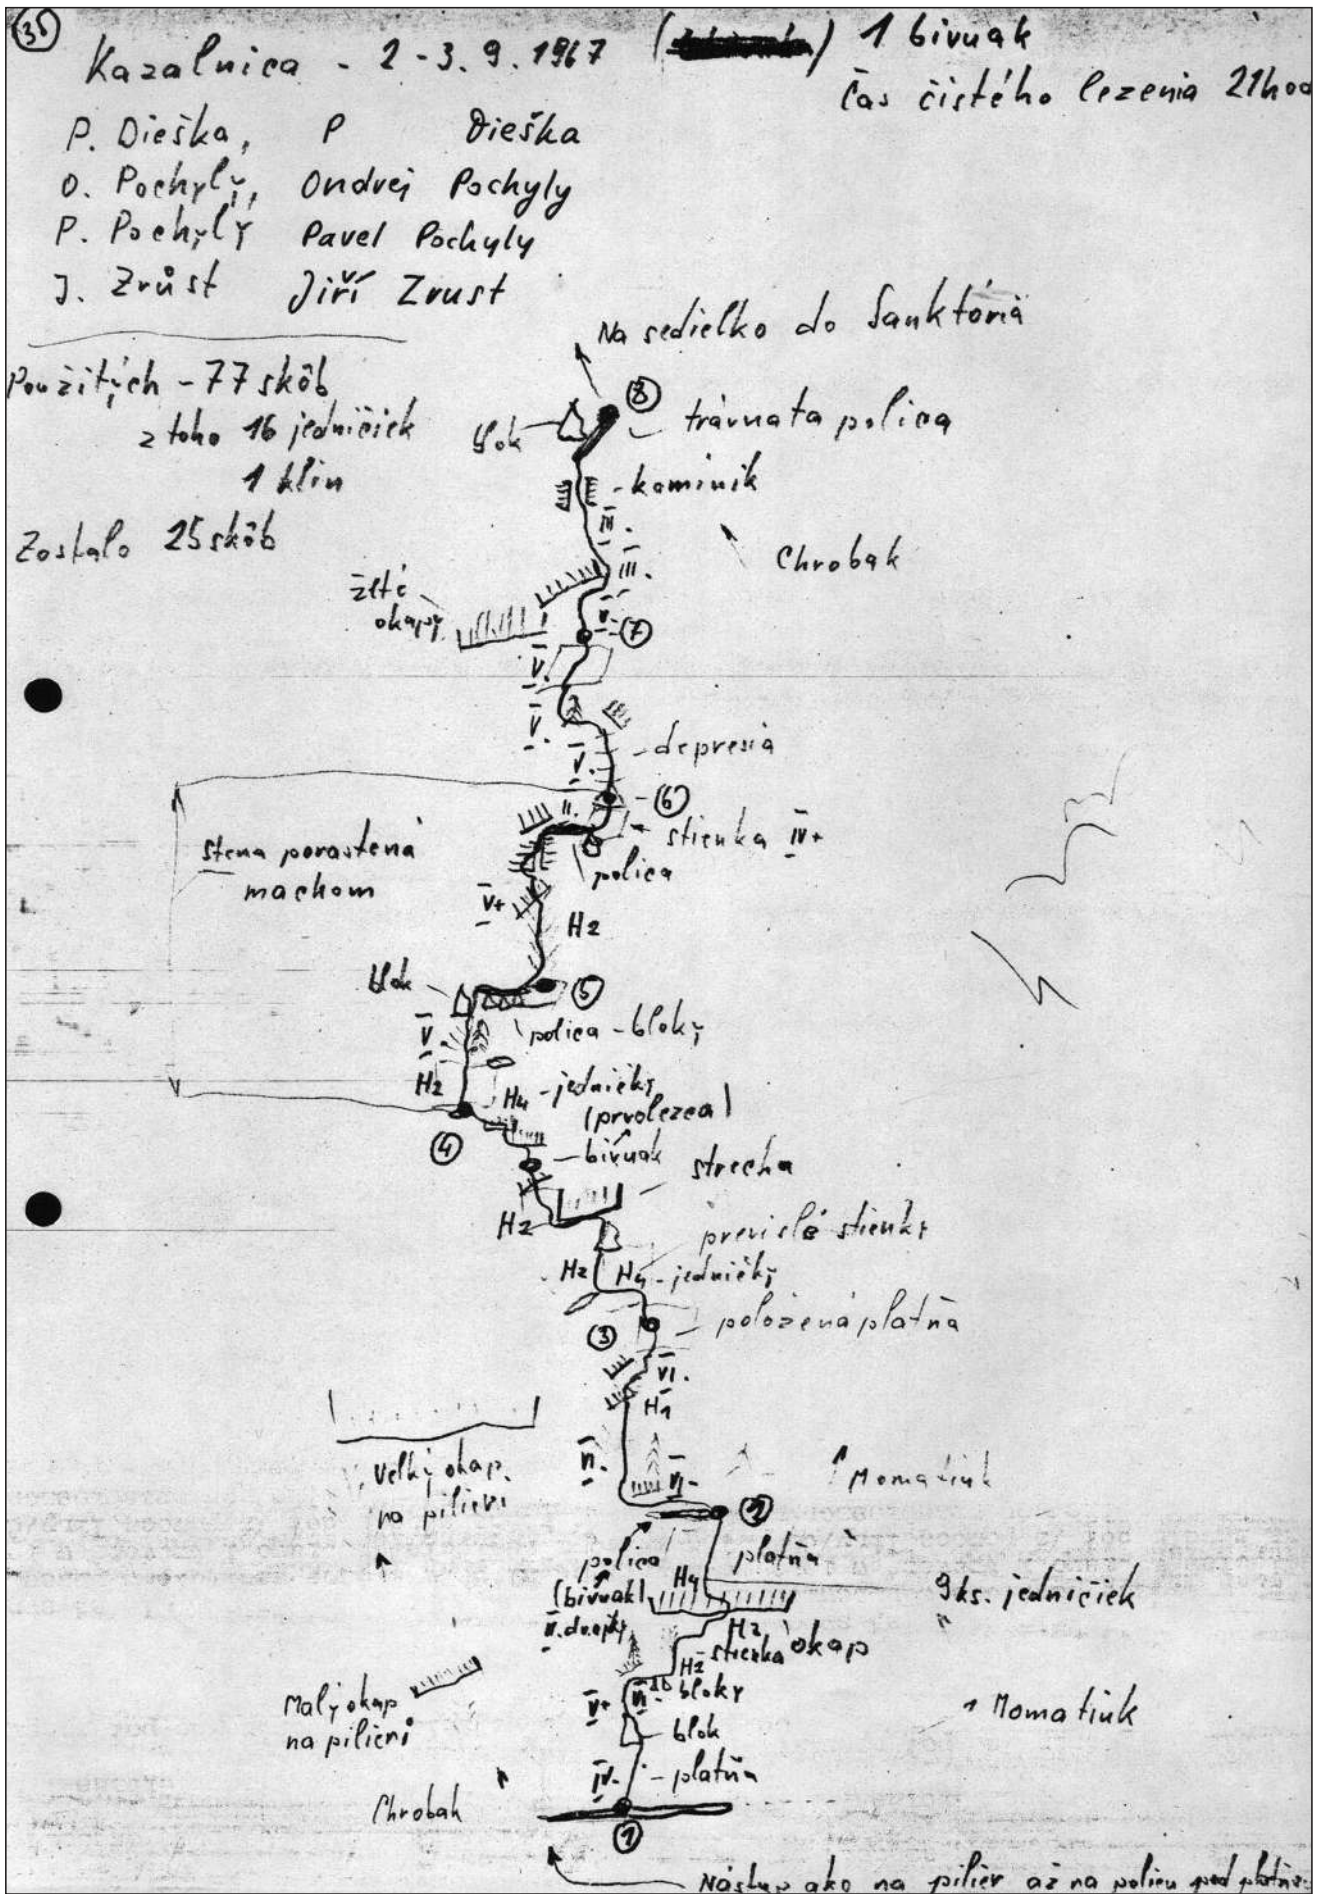 35
Kazalnica - 2 - 3. 9. 1967 ( ) 1 bivuak
Čas čistého lezenia 21hod
P. Dieška, P Dieška
O. Pochylý, Ondrej Pochyly
P. Pochylý Pavel Pochyly
J. Zrůst Jiří Zrust
Použitých - 77 skôb
z toho 16 jedničiek
1 klin
Zostalo 25 skôb
Na sedielko do Sanktória
8
blok
trávnata polica
kominik
III.
Chrobak
III.
žlté
okapy
V
7
V.
V.
V.
depresia
6
II.
stienka IV+
polica
stena porastená
machom
V+
H2
blok
5
V
polica - bloky
H2
H4 - jedničky
(prvolezca)
4
bivuak
strecha
H2
previslé stienky
H2 H4 - jedničky
3
položená platňa
VI.
H1
Velký okap
na pilieri
VI.
VI-
Momatiuk
2
polica
(bivuak)
platňa
H4
9ks. jedničiek
H2
okap
stienka
H2
Malý okap
na pilieri
V+
VI-
bloky
blok
Momatiuk
IV-
platňa
Chrobak
1
Nástup ako na pilier až na policu pod platňu